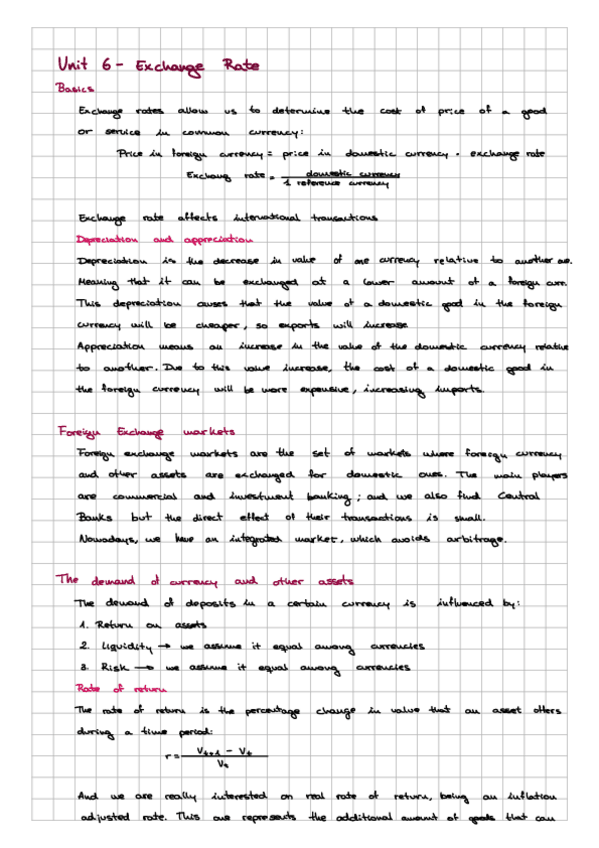 Unit 6 - Exchange Rate
Basics
Exchange rates allow us to determine the cost of price of a good
or service in common currency:
Price in foreign currency = price in domestic currency · exchange rate
Exchang rate = domestic currency / 1 reference currency
Exchange rate affects international transactions
Depreciation and appreciation
Depreciation is the decrease in value of one currency relative to another one.
Meaning that it can be exchanged at a lower amount of a foreign curr.
This depreciation causes that the value of a domestic good in the foreign
currency will be cheaper, so exports will increase
Appreciation means an increase in the value of the domestic currency relative
to another. Due to this value increase, the cost of a domestic good in
the foreign currency will be more expensive, increasing imports.
Foreign Exchange markets
Foreign exchange markets are the set of markets where foreign currency
and other assets are exchanged for domestic ones. The main players
are commercial and investment banking; and we also find Central
Banks but the direct effect of their transactions is small.
Nowadays, we have an integrated market, which avoids arbitrage.
The demand of currency and other assets
The demand of deposits in a certain currency is influenced by:
1. Return on assets
2. Liquidity → we assume it equal among currencies
3. Risk → we assume it equal among currencies
Rate of return
The rate of return is the percentage change in value that an asset offers
during a time period:
r = V t+1 - V t / V t
And we are really interested on real rate of return, being an inflation
adjusted rate. This one represents the additional amount of goods that can